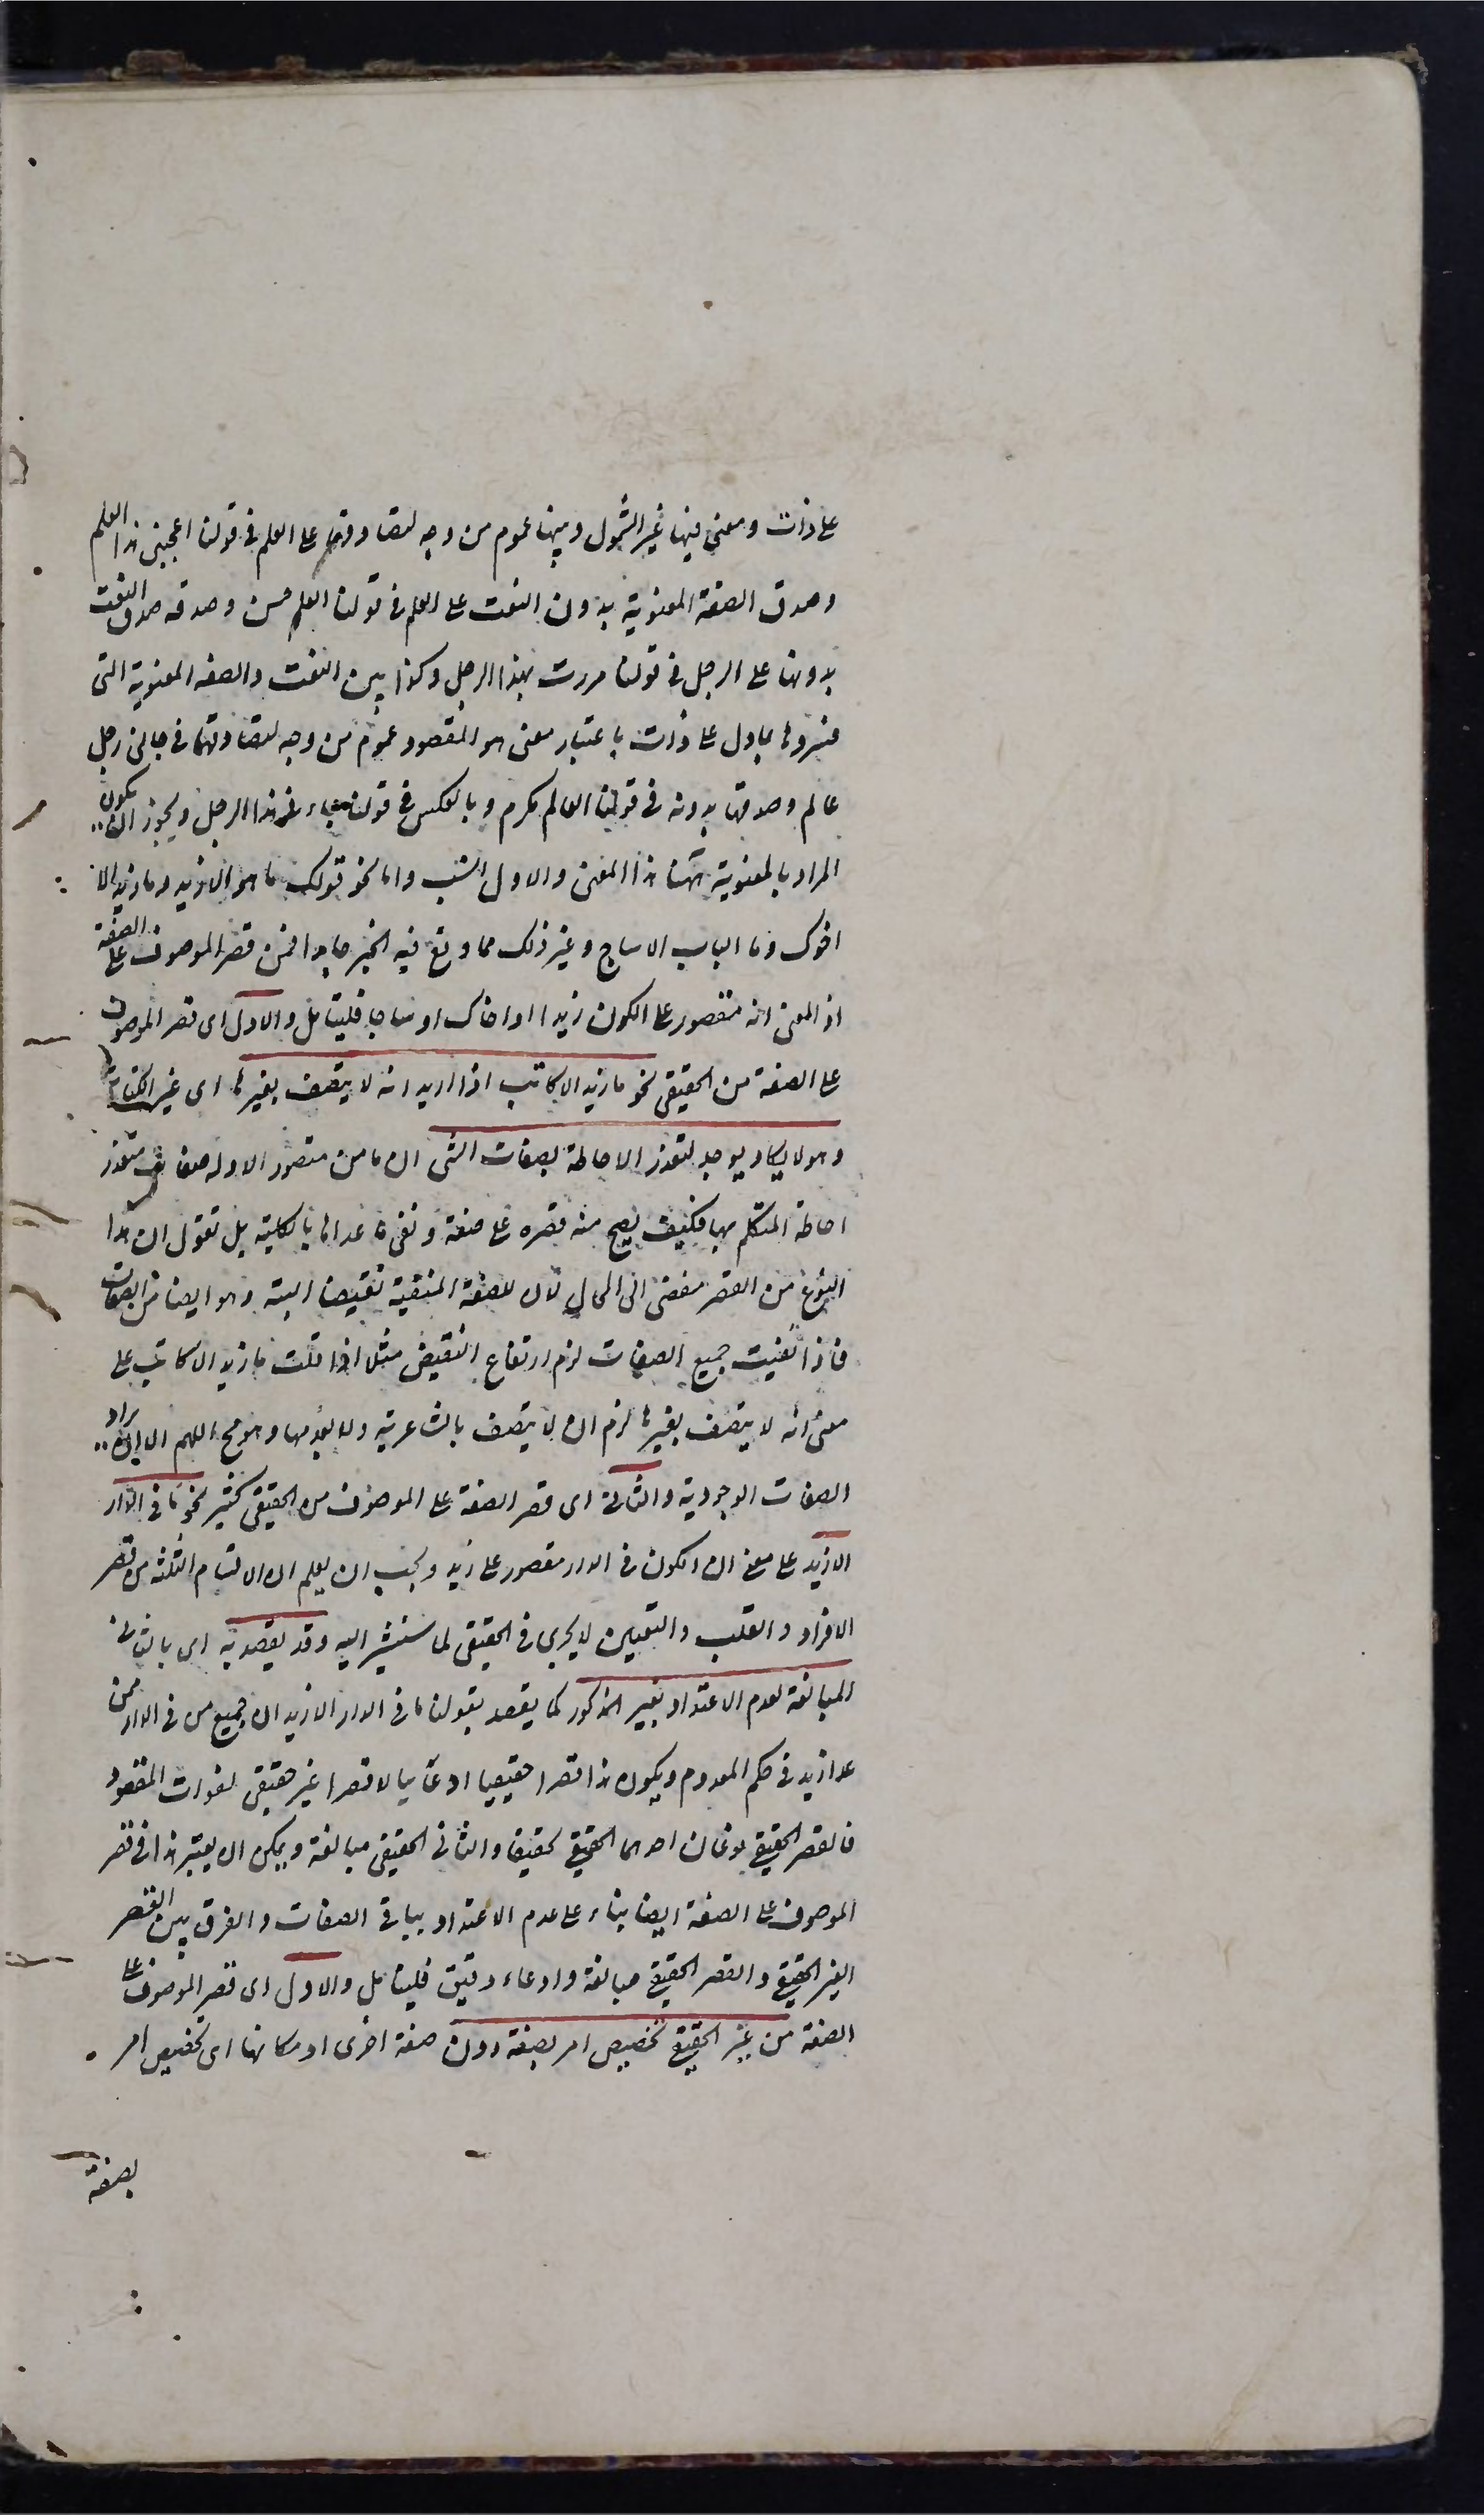 على ذات ومعنى فيها غير الشمول وبينها عموم من وجه لتصادقهما على العلم في قولنا اعجبنى هذا العلم
وصدق الصفة المعنوية بدون النعت على العلم في قولنا العلم حسن وصدقه صدق النعت
بدونها على الرجل في قولنا مررت بهذا الرجل وكذا بين النعت والصفه المعنوية التى
فسروها بما دل على ذات باعتبار معنى هو المقصود عموم من وجه لتصادقهما في جاءنى رجل
عالم وصدقها بدونه في قولنا العالم مكرم وبالعكس في قولنا جاءنى هذا الرجل ويجوز ان يكون
المراد بالمعنوية ههنا هذا المعنى والاول انسب واما نحو قولك ما هو الا زيد وما زيد الا
اخوك وما الباب الا ساج وغير ذلك مما وقع فيه الخبر جامدا فمن قصر الموصوف على الصفة
اذ المعنى انه مقصور على الكون زيدا او اخاك او ساجا فليتامل والاول اى قصر الموصوف
على الصفة من الحقيقى نحو ما زيد الا كاتب اذا اريد انه لا يتصف بغيرها اى غير الكتابة
وهو لا يكاد يوجد لتعذر الاحاطة بصفات الشى اذ ما من متصور الا وله صفات يتعذر
احاطة المتكلم بها فكيف يصح منه قصره على صفة ونفى ما عداها بالكلية بل نقول ان هذا
النوع من القصر مفضى الى المحال لان للصفة المنفية نقيضا البتة وهو ايضا من الصفات
فاذا نفيت جميع الصفات لزم ارتفاع النقيض مثلا اذا قلت ما زيد الا كاتب على
معنى انه لا يتصف بغيرها لزم ان لا يتصف بالشاعرية ولا بعدمها وهو مح اللهم الا ان يراد
الصفات الوجودية والثانى اى قصر الصفة على الموصوف من الحقيقى كثير نحو ما في الدار
الا زيد على معنى ان الكون في الدار مقصور على زيد ويجب ان يعلم ان الاقسام الثلثة من قصر
الافراد والقلب والتعيين لا يجرى في الحقيقى لما سنشير اليه وقد يقصد به اى بالثانى
المبالغة لعدم الاعتداد بغير المذكور كما يقصد بقولنا ما في الدار الا زيد ان جميع من في الدار ممن
عدا زيد في حكم المعدوم ويكون هذا قصرا حقيقيا ادعائيا لا قصرا غير حقيقى لفوات المقصود
فالقصر الحقيقى نوعان احدهما الحقيقى تحقيقا والثانى الحقيقى مبالغة ويمكن ان يعتبر هذا في قصر
الموصوف على الصفة ايضا بناء على عدم الاعتداد بباقى الصفات والفرق بين القصر
الغير الحقيقى والقصر الحقيقى مبالغة وادعاء دقيق فليتامل والاول اى قصر الموصوف على
الصفة من غير الحقيقى تخصيص امر بصفة دون صفة اخرى او مكانها اى تخصيص امر
بصفة